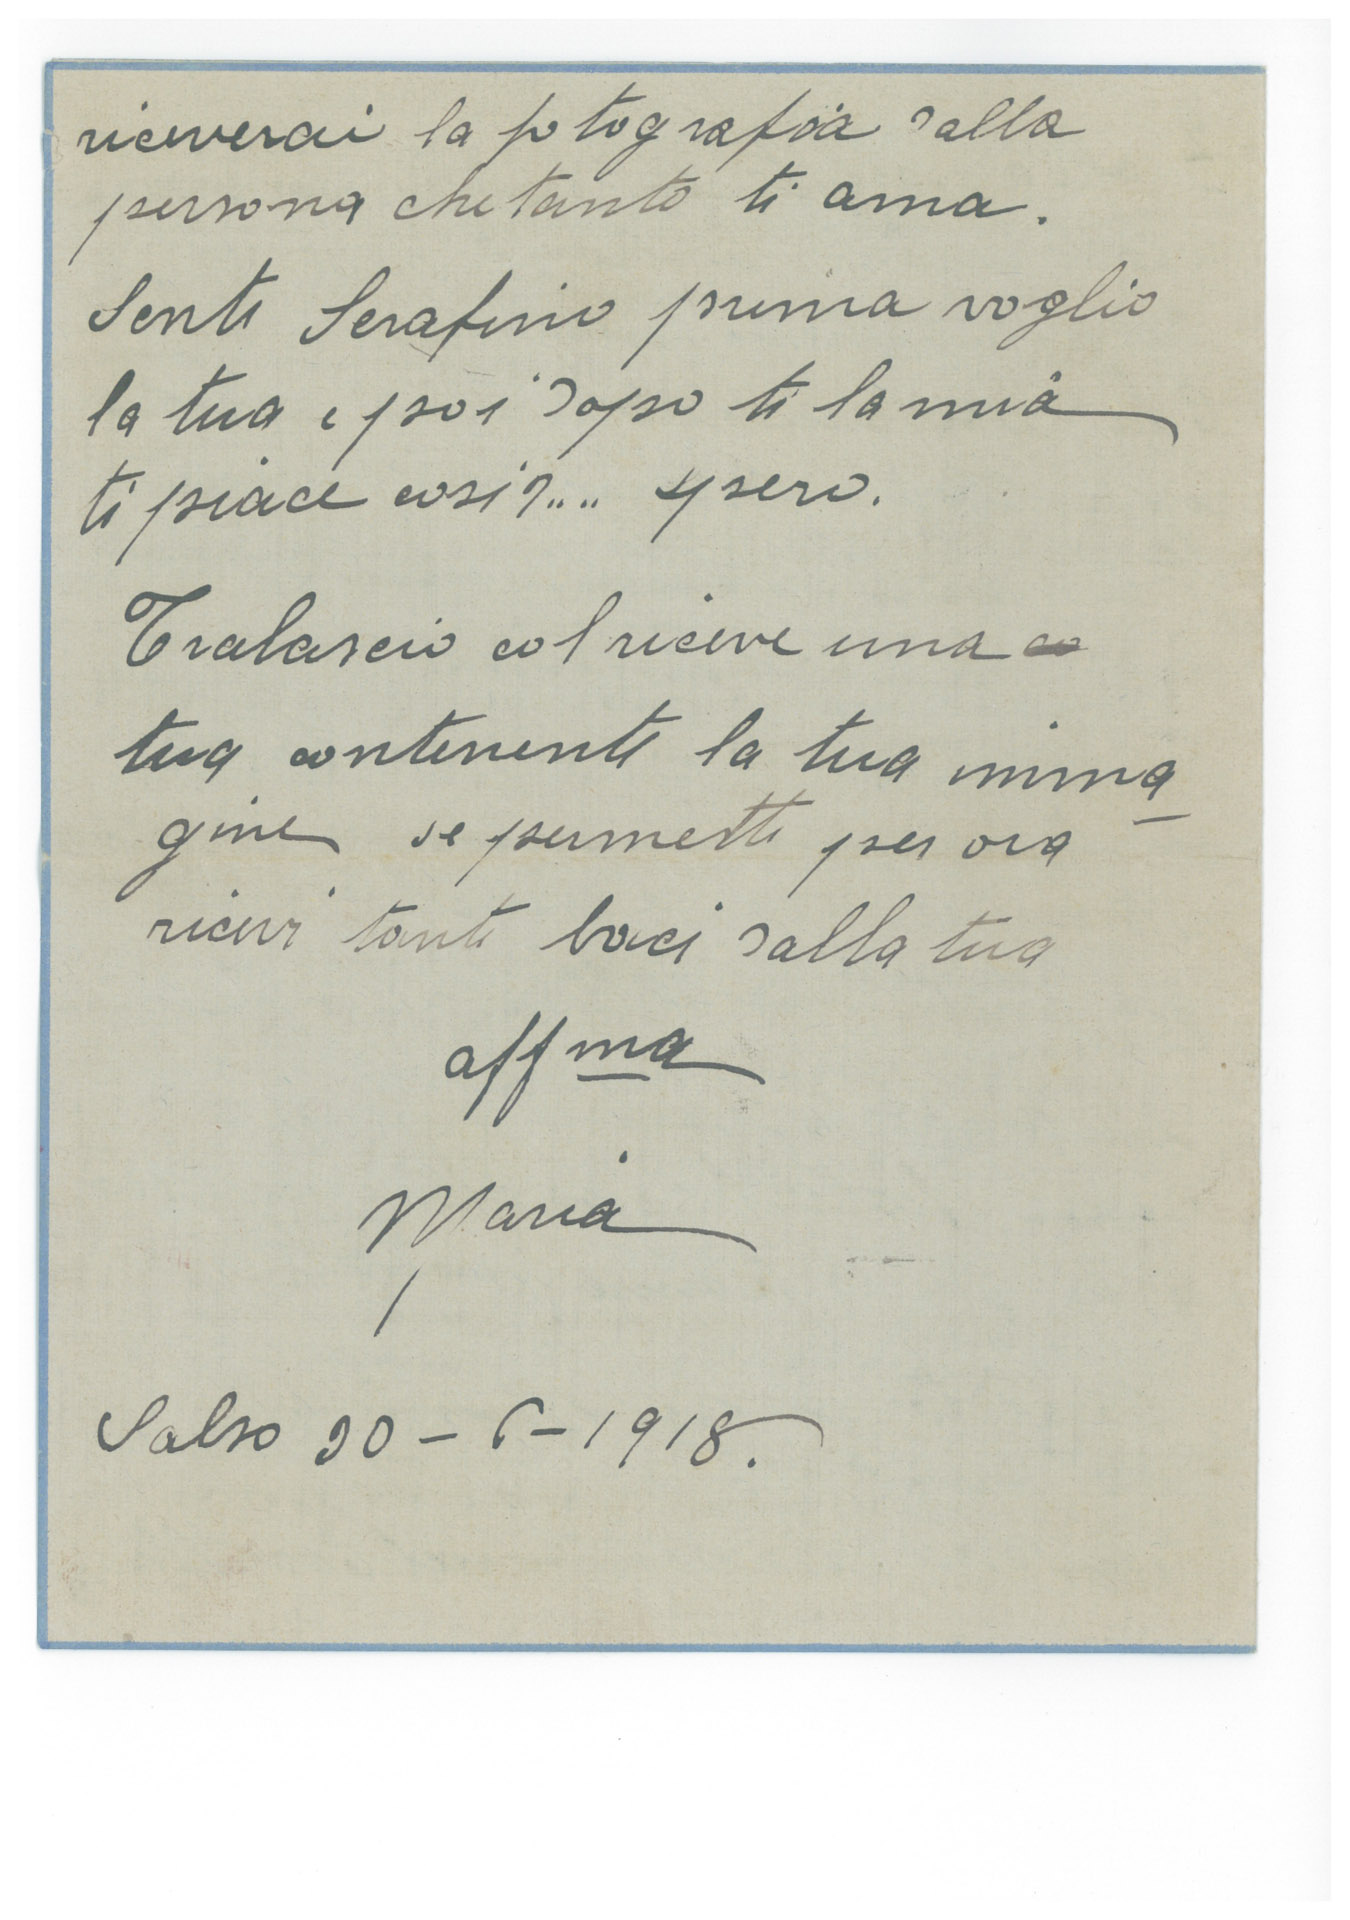 riceverai la fotografia dalla
persona che tanto ti ama.
Senti Serafino prima voglio
la tua e poi dopo ti la mia
ti piace così?.... spero.
Tralascio col riceve una co
tua contenente la tua imma
gine se permetti per ora
ricevi tanti baci dalla tua
affma
Maria
Salso 20-6-1918.